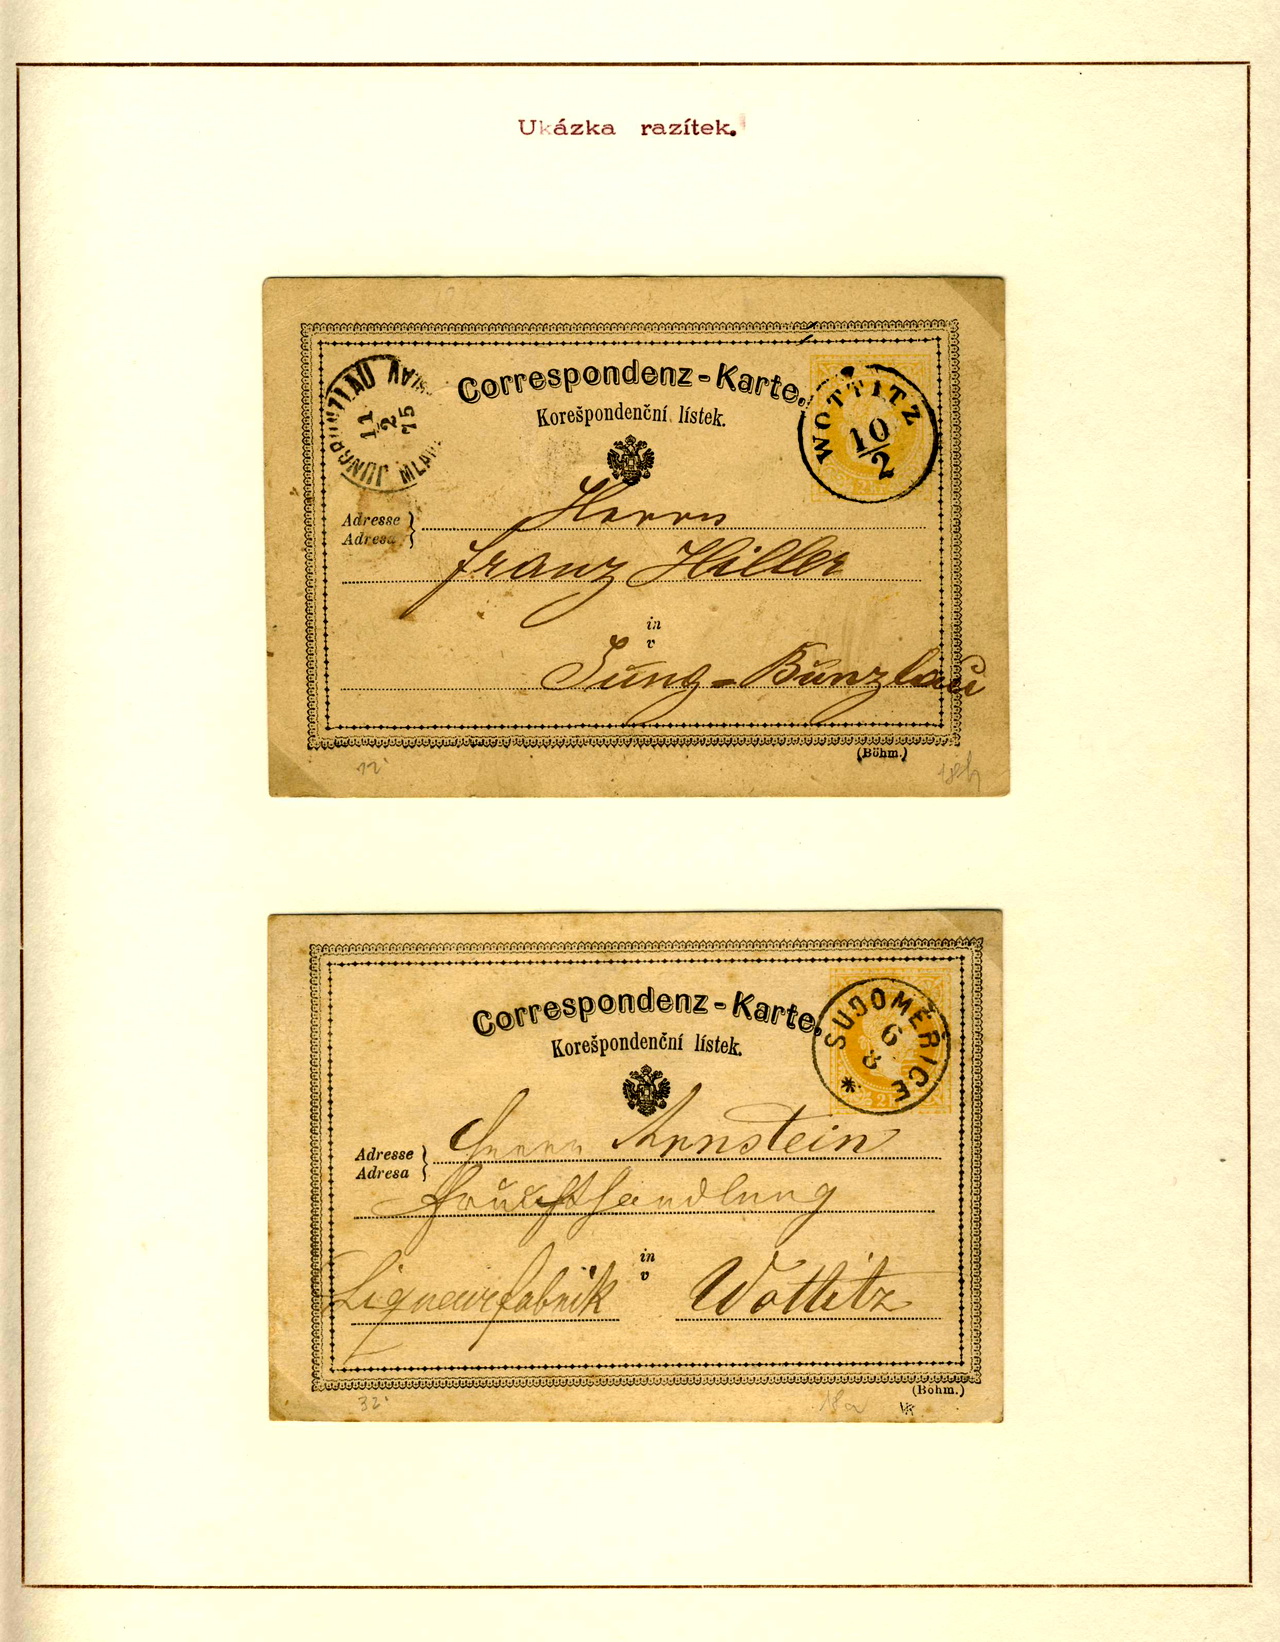 Ukázka razítek.
Correspondenz-Karte.
Korešpondenční lístek.
JUNGBUNZLAU MLADÁ
11
2
75
WOTTITZ
10
2
Adresse
Adresa
Herrn
Franz Hiller
in
v
Jung=Bunzlau
(Böhm.)
12.
Correspondenz-Karte.
Korešpondenční lístek.
SUDOMĚŘICE
6
8
Adresse
Adresa
Herrn Arnstein
Fruchthandlung
in
v
Liqueurfabrik Wottitz
(Böhm.)
32. 18a